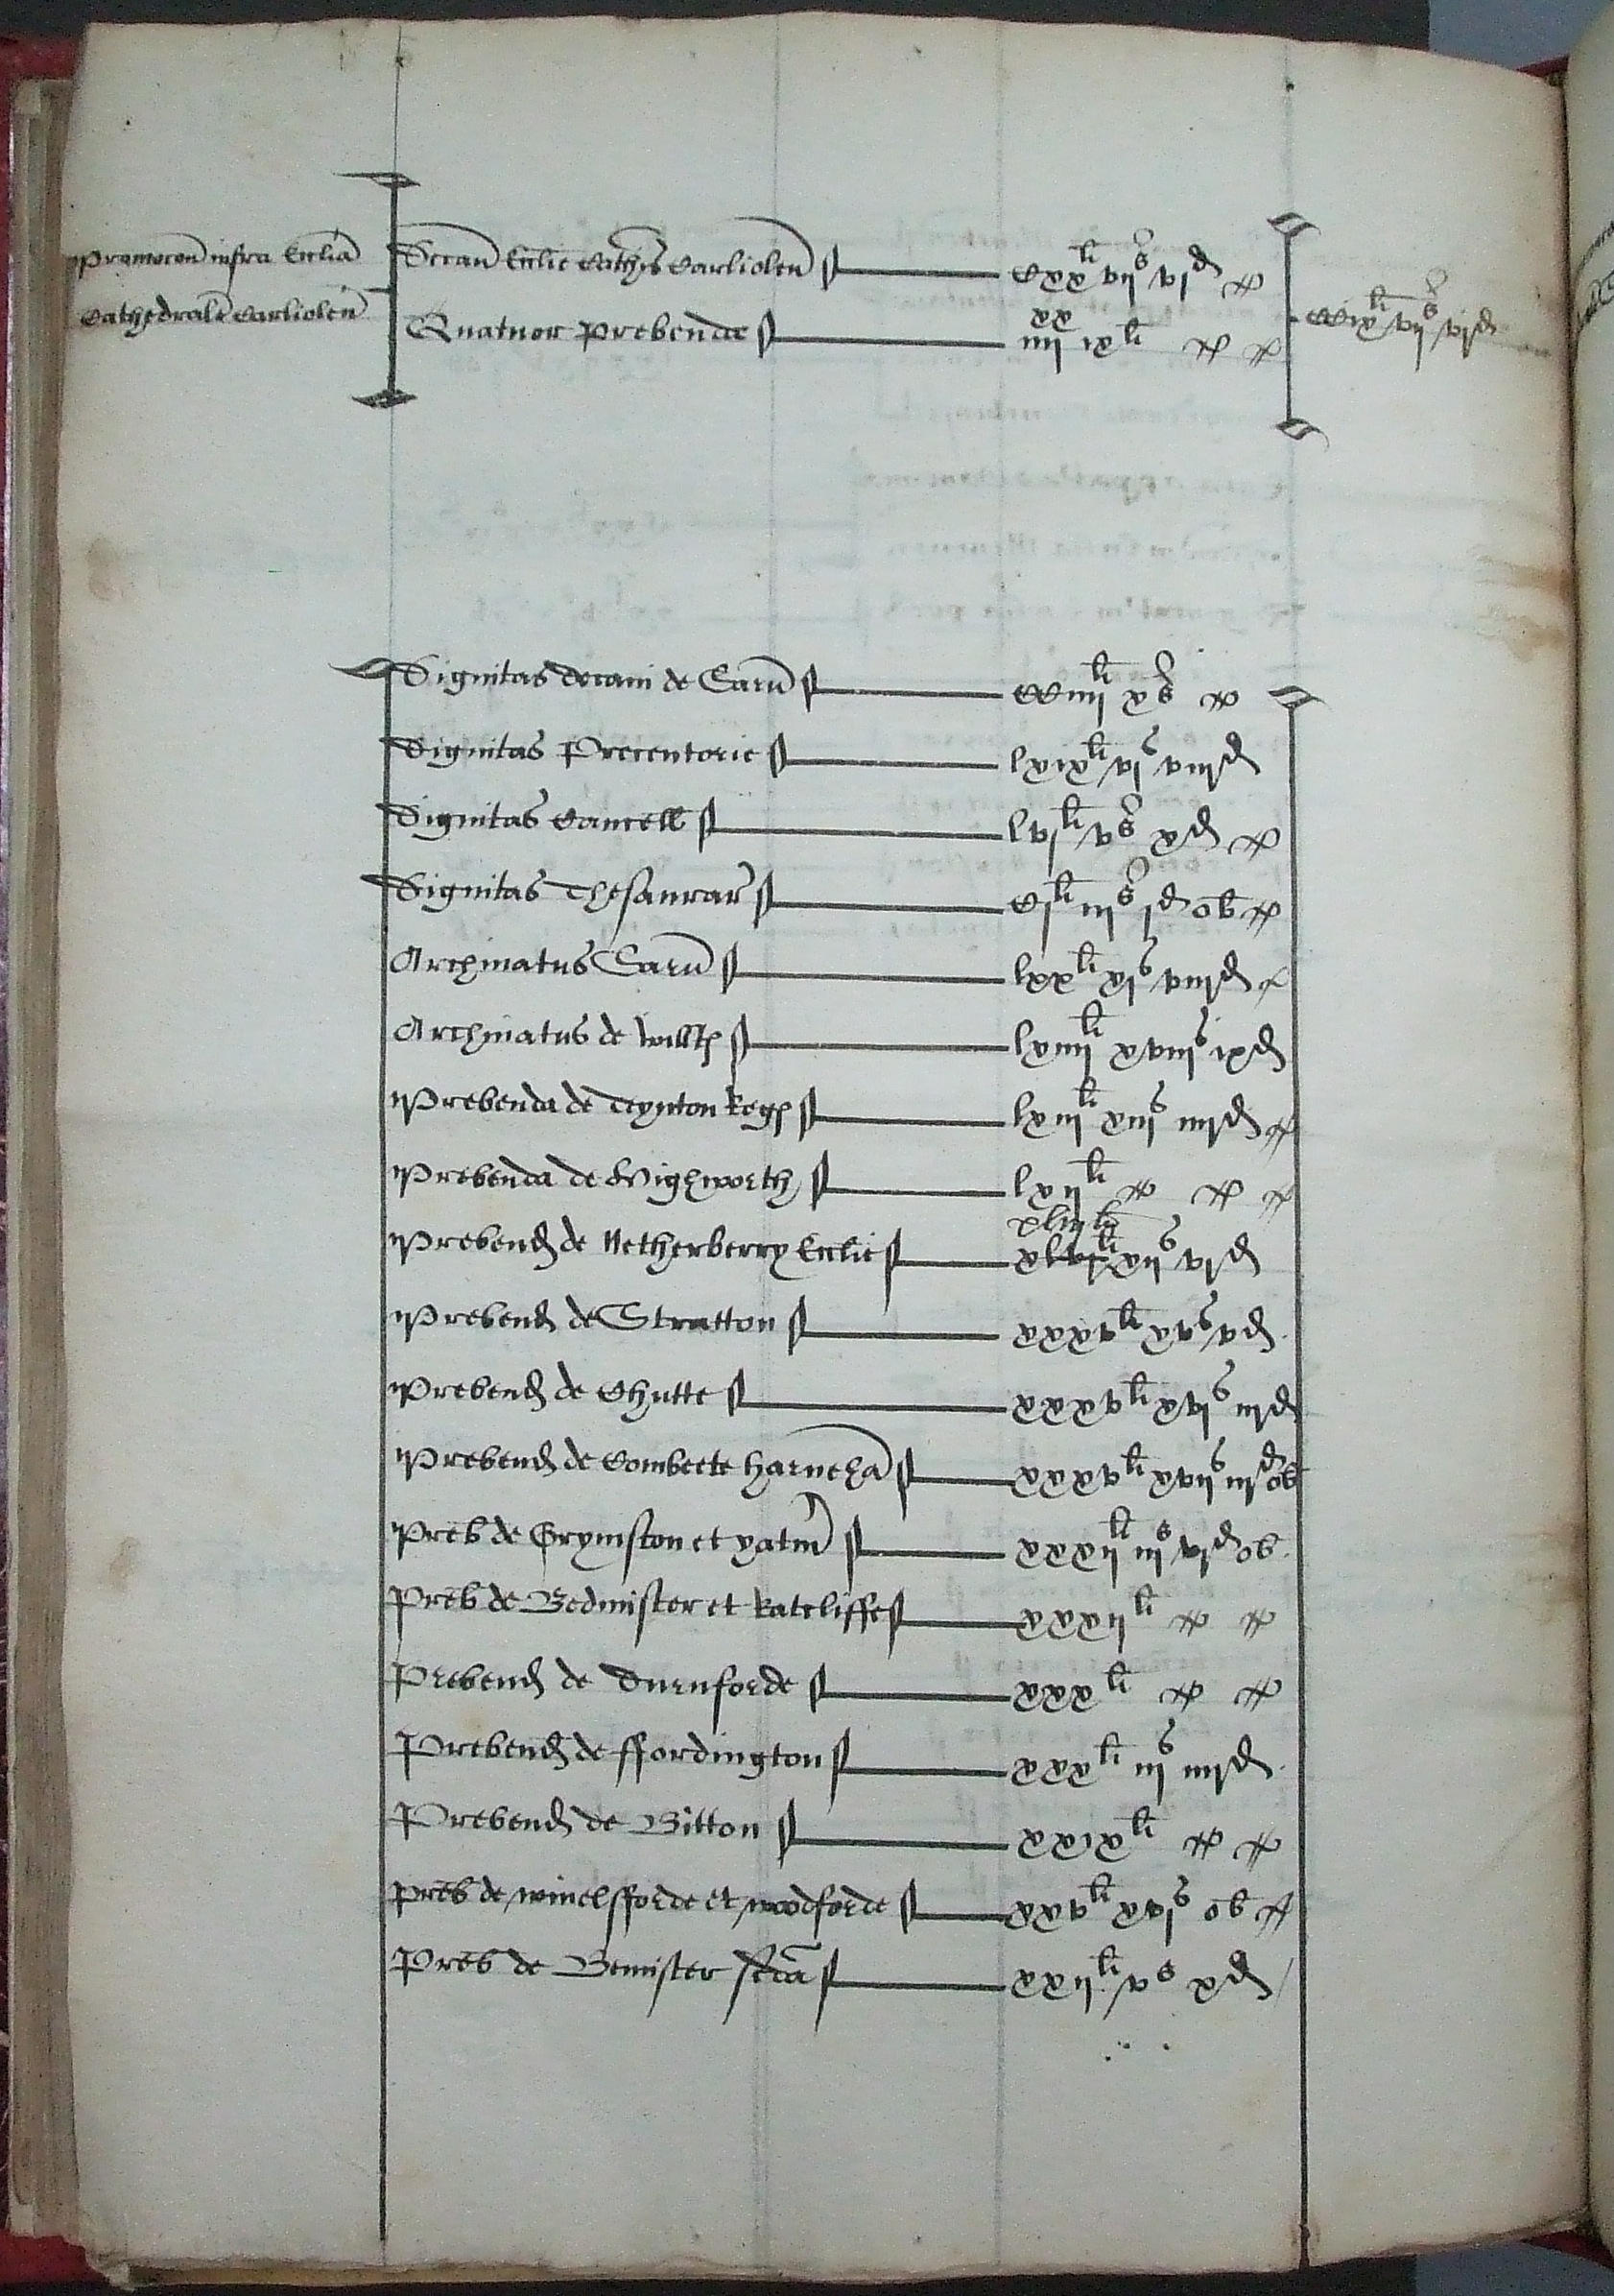 Promocōn infra Eccliā
Cathedralē Carliolen̄
Decan̄ Ecclie Cathis Carliolen̄ cxxli vijs vjd
Quatuor prebendae iiijxx ixli
ccixli vijs vjd
Dignitas decani de Sarū cciiijli xs
Dignitas Precentorie lxixli vjs viijd
Dignitas Cancell lvjli vs xd
Dignitas Thesaurar cjli iijs jd ob
Archinatus Sarū lxxli xjs viijd
Archinatus de willtes lxiiijli xviijs ixd
Prebenda de Teynton Reg lxiijli xiijs iiijd
Prebenda de Highworth lxijli
xliijli
Prebend de Netherberry Ecclie xlvjli xijs vjd
Prebend de Stratton xxxvli xvs vd
Prebend de Chutte xxxvli xvjs iijd
Prebend de Combeete harnehā xxxvli xvijs iijd ob
Preb de Grymston et yatm xxxijli iijs vjd ob
Preb de Bedmister et Ratcliffe xxxijli
Prebend de Durnforde xxxli
Prebend de ffordington xxxli iijs iiijd
Prebend de Bitton xxixli
preb de winelsforde et woodforde xxvli xvjs ob
Preb de Bemister secdā xxijli vs xd